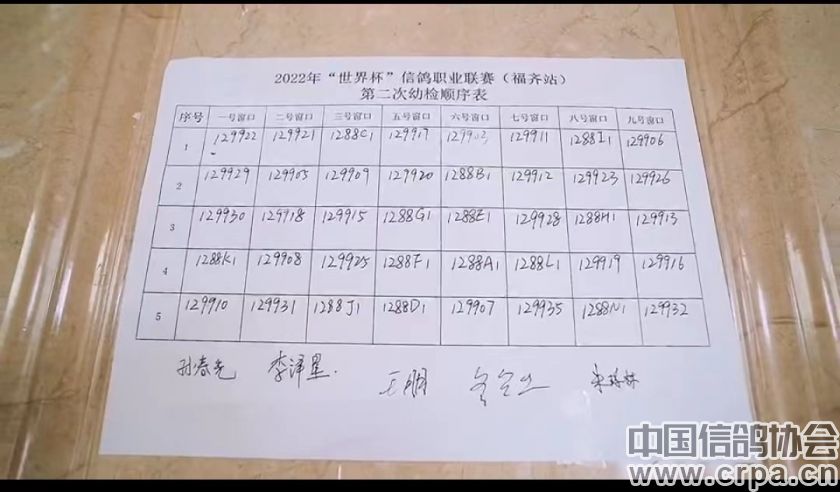 2022年“世界杯”信鸽职业联赛（福齐站）
第二次幼检顺序表
序号 一号窗口 二号窗口 三号窗口 五号窗口 六号窗口 七号窗口 八号窗口 九号窗口
1 129922 129921 1288C1 129917 129911 1288I1 129906
2 129929 129905 129909 129920 1288B1 129912 129923 129926
3 129930 129918 129915 1288G1 1288E1 129928 1288H1 129913
4 1288K1 129908 129925 1288F1 1288A1 1288L1 129919 129916
5 129910 129931 1288J1 1288D1 129907 129935 1288N1 129932
孙春光 李泽星 王朋
中国信鸽协会
www.crpa.cn